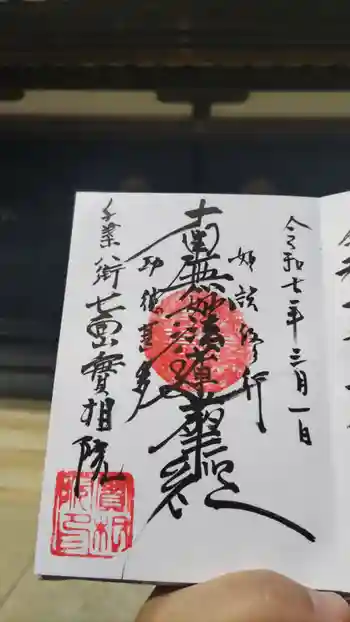 令和七年三月一日
如説修行
南無妙法蓮華経
功徳甚多
千葉街
實相院
實相
院印